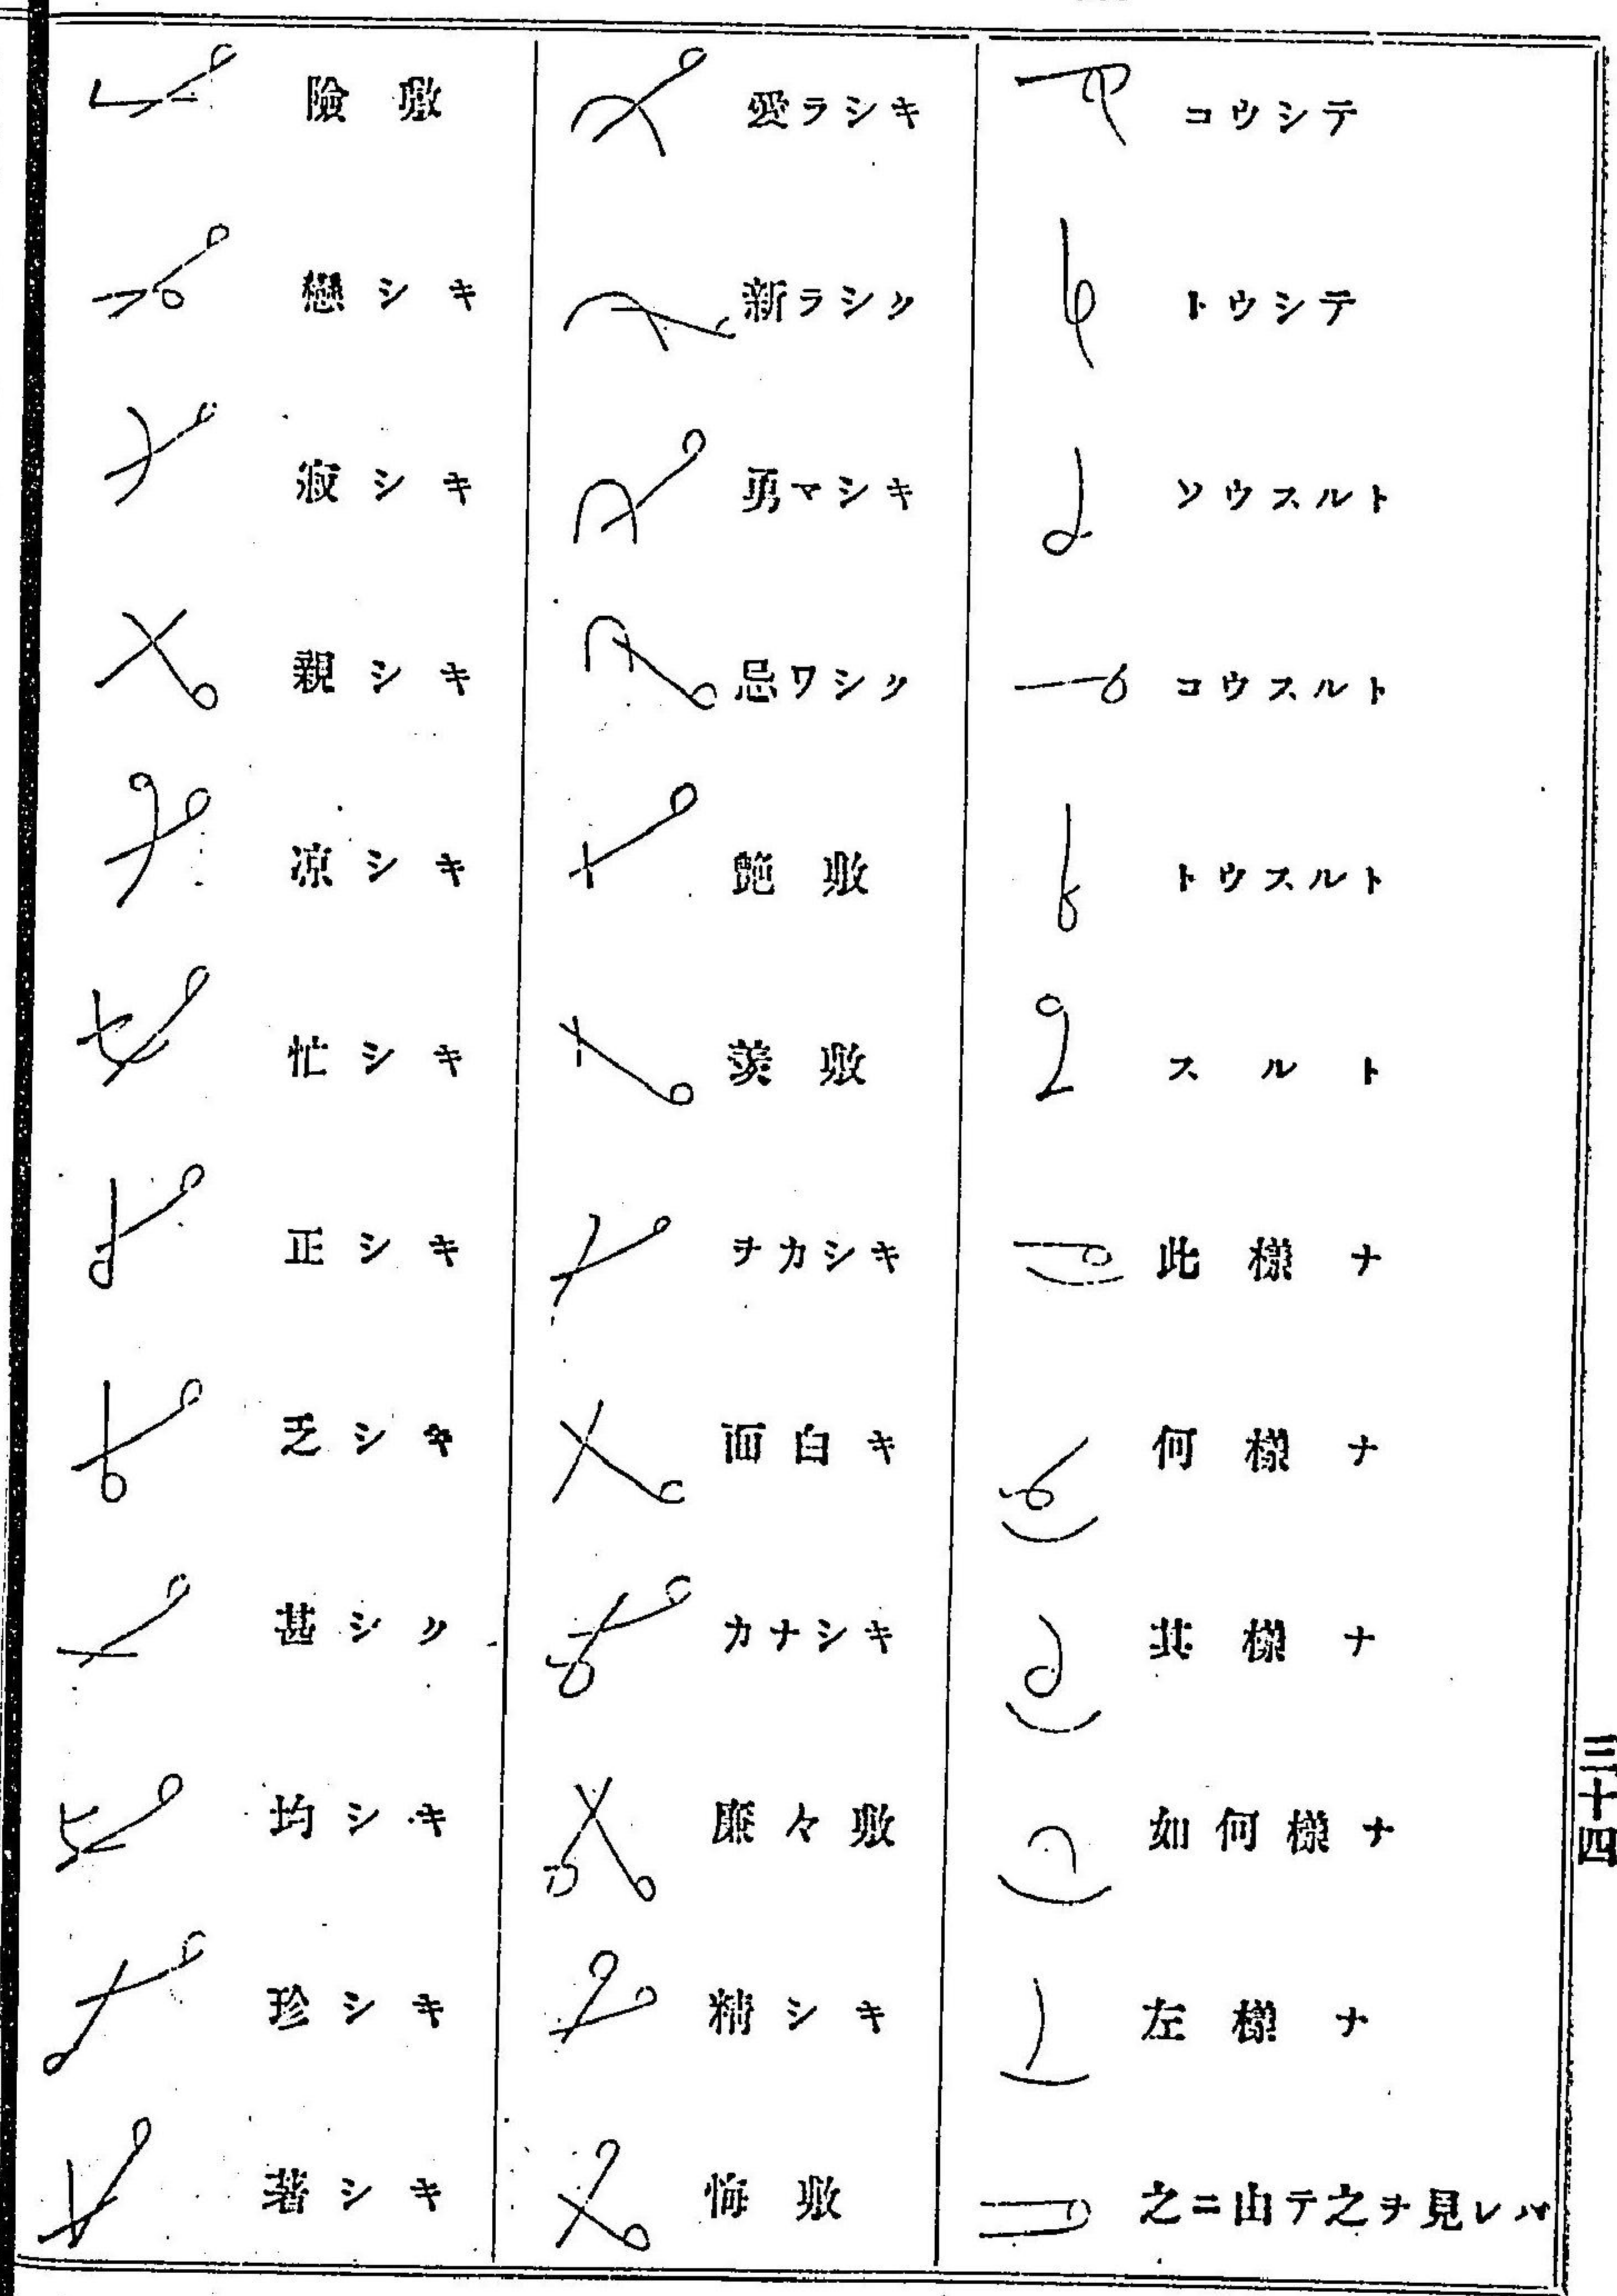 コウシテ
トウシテ
ソウスルト
コウスルト
トウスルト
スルト
此様ナ
何様ナ
其様ナ
如何様ナ
左様ナ
之ニ由テ之ヲ見レバ
愛ラシキ
新ラシク
勇マシキ
忌ワシク
艶敷
羨敷
ヲカシキ
面白キ
カナシキ
廉々敷
精シキ
悔敷
險敷
戀シキ
寂シキ
親シキ
凉シキ
忙シキ
正シキ
乏シキ
甚シク
均シキ
珍シキ
著シキ
三十四